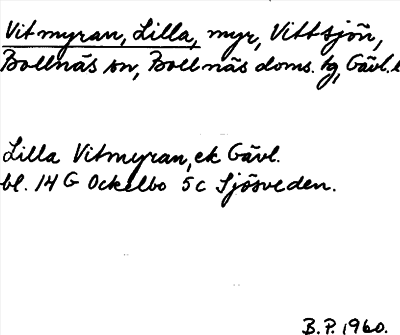 Vitmyran, Lilla, myr, Vittsjön,
Bollnäs sn, Bollnäs doms. tg, Gävl. l
Lilla Vitmyran, ek Gävl.
bl. 14 G Ockelbo 5c Sjösveden.
B.P. 1960.